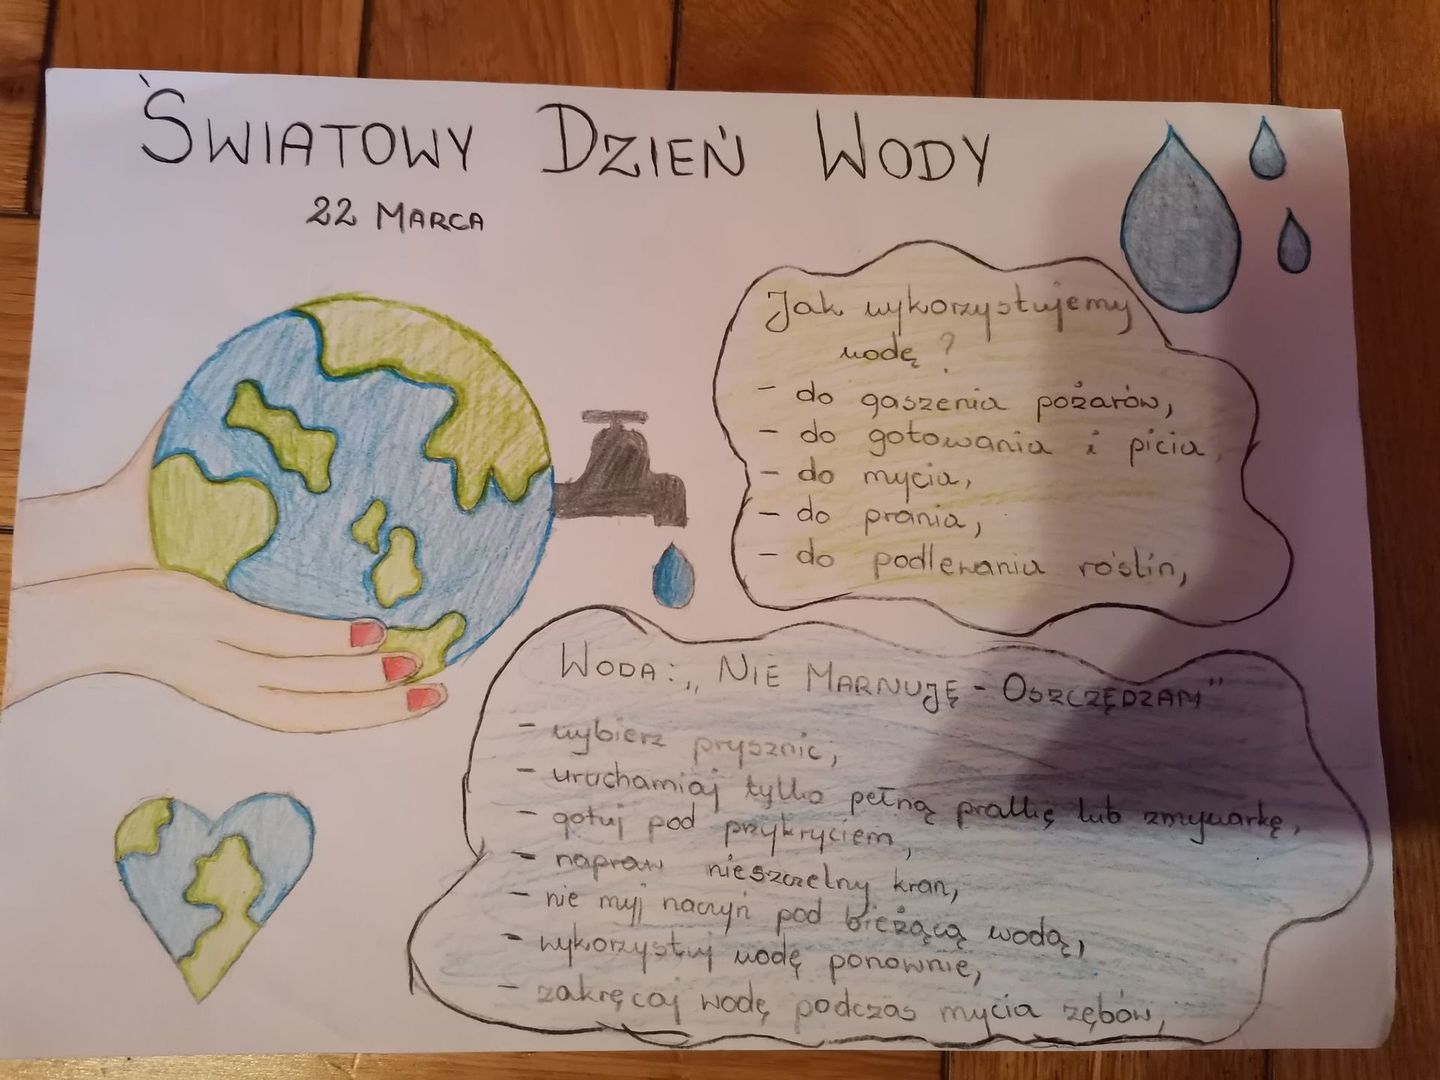 ŚWIATOWY DZIEŃ WODY
22 MARCA
Jak wykorzystujemy
wodę ?
- do gaszenia pożarów,
- do gotowania i picia,
- do mycia,
- do prania,
- do podlewania roślin,
WODA: „NIE MARNUJĘ - OSZCZĘDZAM"
- wybierz prysznic,
- uruchamiaj tylko pełną pralkę lub zmywarkę,
- gotuj pod przykryciem,
- napraw nieszczelny kran,
- nie myj naczyń pod bieżącą wodą,
- wykorzystuj wodę ponownie,
- zakręcaj wodę podczas mycia zębów,